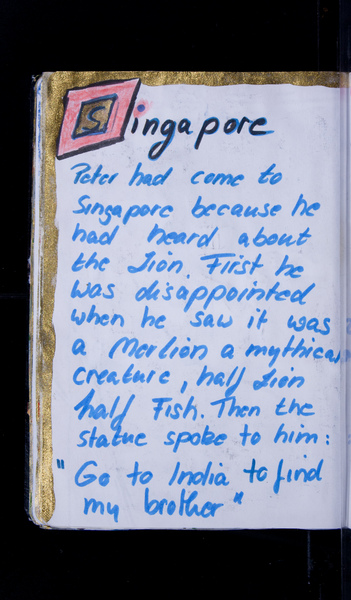 Singapore
Peter had come to
Singapore because he
had heard about
the Lion. First he
was disappointed
when he saw it was
a Merlion a mythical
creature, half Lion
half Fish. Then the
statue spoke to him:
"Go to India to find
my brother"